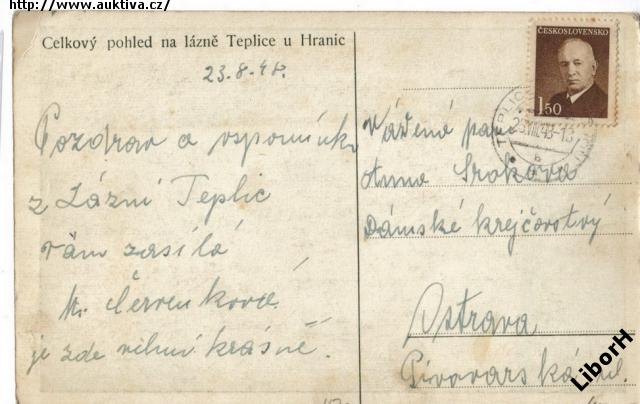 http://www.auktiva.cz/
Celkový pohled na lázně Teplice u Hranic
23.8.48.
Pozdrav a vzpomínku
z Lázní Teplic
Vám zasílá
M. Červenková.
je zde velmi krásně.
ČESKOSLOVENSKO
1.50
TEPLICE
23.VIII.48-13
b
Vážená paní
Anna Srokova
Dámské krejčovství
Ostrava
Pivovarská ul.
LiborH